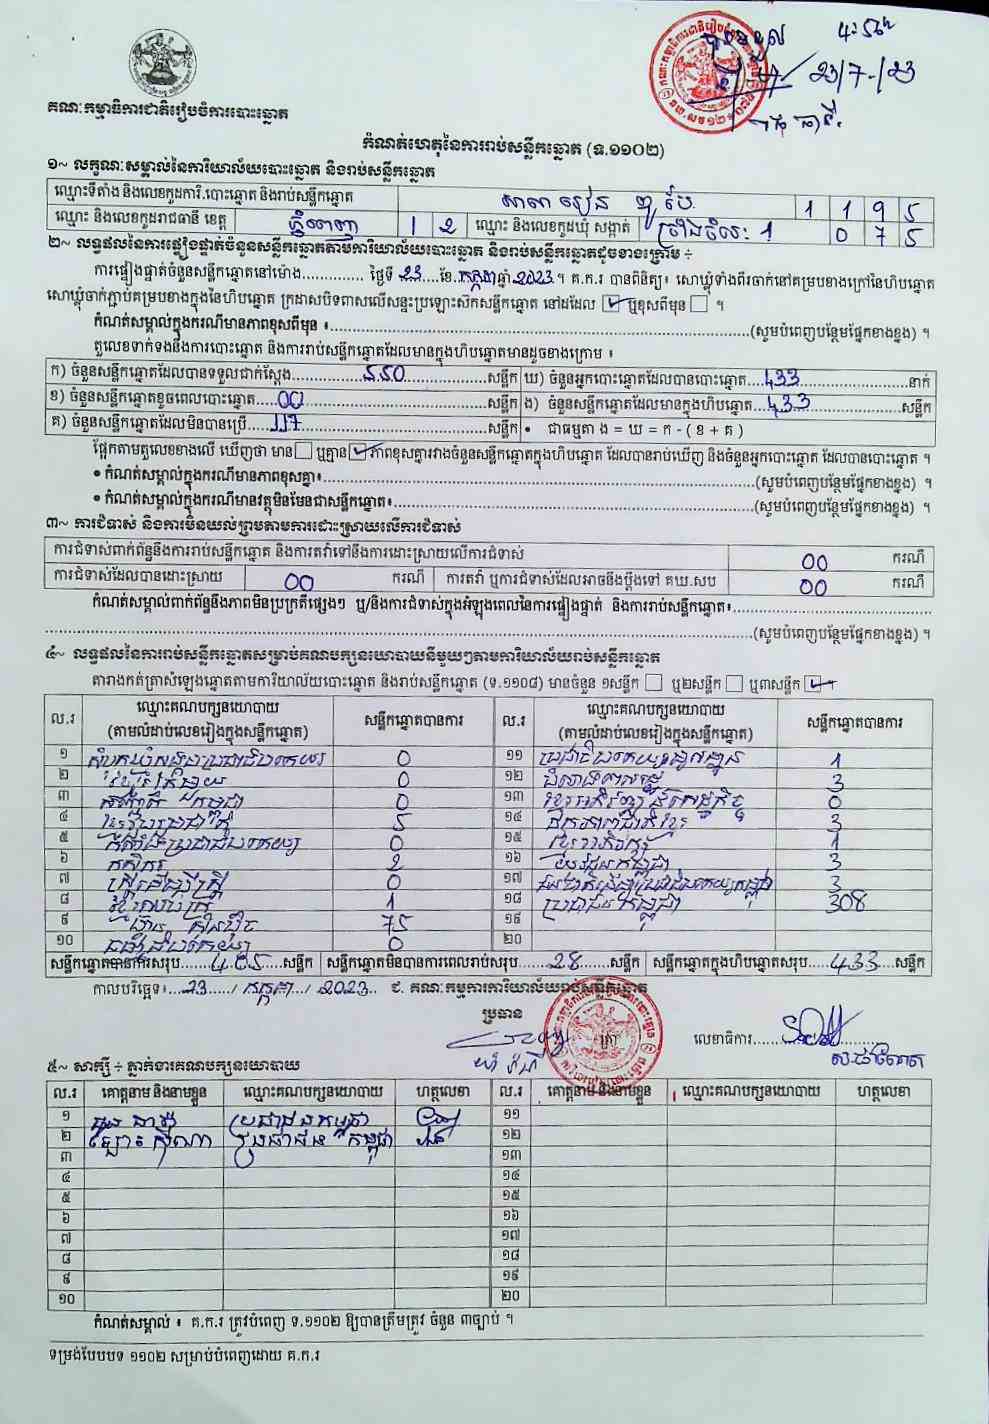 4:50
23/7-/23
គណៈកម្មាធិការជាតិរៀបចំការបោះឆ្នោត
កំណត់ហេតុនៃការរាប់សន្លឹកឆ្នោត (ទ.១១០២)
១~ លក្ខណៈសម្គាល់នៃការិយាល័យបោះឆ្នោត និងរាប់សន្លឹកឆ្នោត
ឈ្មោះទីតាំង និងលេខកូដការិ.បោះឆ្នោត និងរាប់សន្លឹកឆ្នោត 1 1 9 5
ឈ្មោះ និងលេខកូដរាជធានី ខេត្ត ភ្នំពេញ 1 2 ឈ្មោះ និងលេខកូដឃុំ សង្កាត់ 0 7 5
២~ លទ្ធផលនៃការផ្ទៀងផ្ទាត់ចំនួនសន្លឹកឆ្នោតតាមការិយាល័យបោះឆ្នោត និងរាប់សន្លឹកឆ្នោតដូចខាងក្រោម ÷
ការផ្ទៀងផ្ទាត់ចំនួនសន្លឹកឆ្នោតនៅម៉ោង............. ថ្ងៃទី 23 ខែ កក្កដា ឆ្នាំ 2023 ។ គ.ក.រ បានពិនិត្យ៖ សោឃ្លុំទាំងពីរចាក់នៅគម្របខាងក្រៅនៃហិបឆ្នោត
សោឃ្លុំចាក់ភ្ជាប់គម្របខាងក្នុងនៃហិបឆ្នោត ក្រដាសបិទពាសលើសន្ទះប្រឡោះស៊កសន្លឹកឆ្នោត នៅដដែល ☑ ឬខុសពីមុន ☐ ។
កំណត់សម្គាល់ក្នុងករណីមានភាពខុសពីមុន ៖..........(សូមបំពេញបន្ថែមផ្នែកខាងខ្នង) ។
តួលេខទាក់ទងនឹងការបោះឆ្នោត និងការរាប់សន្លឹកឆ្នោតដែលមានក្នុងហិបឆ្នោតមានដូចខាងក្រោម ៖
ក) ចំនួនសន្លឹកឆ្នោតដែលបានទទួលជាក់ស្តែង..........550..........សន្លឹក ឃ) ចំនួនអ្នកបោះឆ្នោតដែលបានបោះឆ្នោត....433..........នាក់
ខ) ចំនួនសន្លឹកឆ្នោតខូចពេលបោះឆ្នោត.....00..........សន្លឹក ង) ចំនួនសន្លឹកឆ្នោតដែលមានក្នុងហិបឆ្នោត....433..........សន្លឹក
គ) ចំនួនសន្លឹកឆ្នោតដែលមិនបានប្រើ.....117..........សន្លឹក • ជាធម្មតា ង = ឃ = ក - ( ខ + គ )
ផ្អែកតាមតួលេខខាងលើ ឃើញថា មាន ☐ ឬគ្មាន ☑ ភាពខុសគ្នារវាងចំនួនសន្លឹកឆ្នោតក្នុងហិបឆ្នោត ដែលបានរាប់ឃើញ និងចំនួនអ្នកបោះឆ្នោត ដែលបានបោះឆ្នោត ។
• កំណត់សម្គាល់ក្នុងករណីមានភាពខុសគ្នា៖..........(សូមបំពេញបន្ថែមផ្នែកខាងខ្នង) ។
• កំណត់សម្គាល់ក្នុងករណីមានវត្ថុមិនមែនជាសន្លឹកឆ្នោត៖..........(សូមបំពេញបន្ថែមផ្នែកខាងខ្នង) ។
៣~ ការជំទាស់ និងការមិនយល់ព្រមតាមការដោះស្រាយលើការជំទាស់
ការជំទាស់ពាក់ព័ន្ធនឹងការរាប់សន្លឹកឆ្នោត និងការតវ៉ាទៅនឹងការដោះស្រាយលើការជំទាស់ 00 ករណី
ការជំទាស់ដែលបានដោះស្រាយ 00 ករណី ការតវ៉ា ឬការជំទាស់ដែលអាចនឹងប្តឹងទៅ គឃ.សប 00 ករណី
កំណត់សម្គាល់ពាក់ព័ន្ធនឹងភាពមិនប្រក្រតីផ្សេងៗ ឬ/និងការជំទាស់ក្នុងអំឡុងពេលនៃការផ្ទៀងផ្ទាត់ និងការរាប់សន្លឹកឆ្នោត៖..........
..........(សូមបំពេញបន្ថែមផ្នែកខាងខ្នង) ។
៤~ លទ្ធផលនៃការរាប់សន្លឹកឆ្នោតសម្រាប់គណបក្សនយោបាយនីមួយៗតាមការិយាល័យរាប់សន្លឹកឆ្នោត
តារាងកត់ត្រាសំឡេងឆ្នោតតាមការិយាល័យបោះឆ្នោត និងរាប់សន្លឹកឆ្នោត (ទ.១១០៨) មានចំនួន ១សន្លឹក ☐ ឬ២សន្លឹក ☐ ឬ៣សន្លឹក ☑ ។
ល.រ ឈ្មោះគណបក្សនយោបាយ (តាមលំដាប់លេខរៀងក្នុងសន្លឹកឆ្នោត) សន្លឹកឆ្នោតបានការ ល.រ ឈ្មោះគណបក្សនយោបាយ (តាមលំដាប់លេខរៀងក្នុងសន្លឹកឆ្នោត) សន្លឹកឆ្នោតបានការ
១ 0 ១១ 1
២ 0 ១២ 3
៣ 0 ១៣ 0
៤ 5 ១៤ 3
៥ 0 ១៥ 1
៦ កសិករ 2 ១៦ 3
៧ ស្ត្រីដើម្បីស្ត្រី 0 ១៧ 3
៨ 1 ១៨ ប្រជាជនកម្ពុជា 308
៩ ហ៊្វុនស៊ិនប៉ិច 75 ១៩
១០ 0 ២០
សន្លឹកឆ្នោតបានការសរុប......405.....សន្លឹក សន្លឹកឆ្នោតមិនបានការពេលរាប់សរុប.....28.....សន្លឹក សន្លឹកឆ្នោតក្នុងហិបឆ្នោតសរុប.....433.....សន្លឹក
កាលបរិច្ឆេទ៖...23..../ កក្កដា.../ 2023.. ជ. គណៈកម្មការការិយាល័យរាប់សន្លឹកឆ្នោត
ប្រធាន
ត្រា លេខាធិការ..........
៥~ សាក្សី ÷ ភ្នាក់ងារគណបក្សនយោបាយ
ល.រ គោត្តនាម និងនាមខ្លួន ឈ្មោះគណបក្សនយោបាយ ហត្ថលេខា ល.រ គោត្តនាម និងនាមខ្លួន ឈ្មោះគណបក្សនយោបាយ ហត្ថលេខា
១ ប្រជាជនកម្ពុជា ១១
២ ប្រជាជនកម្ពុជា ១២
៣ ១៣
៤ ១៤
៥ ១៥
៦ ១៦
៧ ១៧
៨ ១៨
៩ ១៩
១០ ២០
កំណត់សម្គាល់ ៖ គ.ក.រ ត្រូវបំពេញ ទ.១១០២ ឱ្យបានត្រឹមត្រូវ ចំនួន ៣ច្បាប់ ។
ទម្រង់បែបបទ ១១០២ សម្រាប់បំពេញដោយ គ.ក.រ